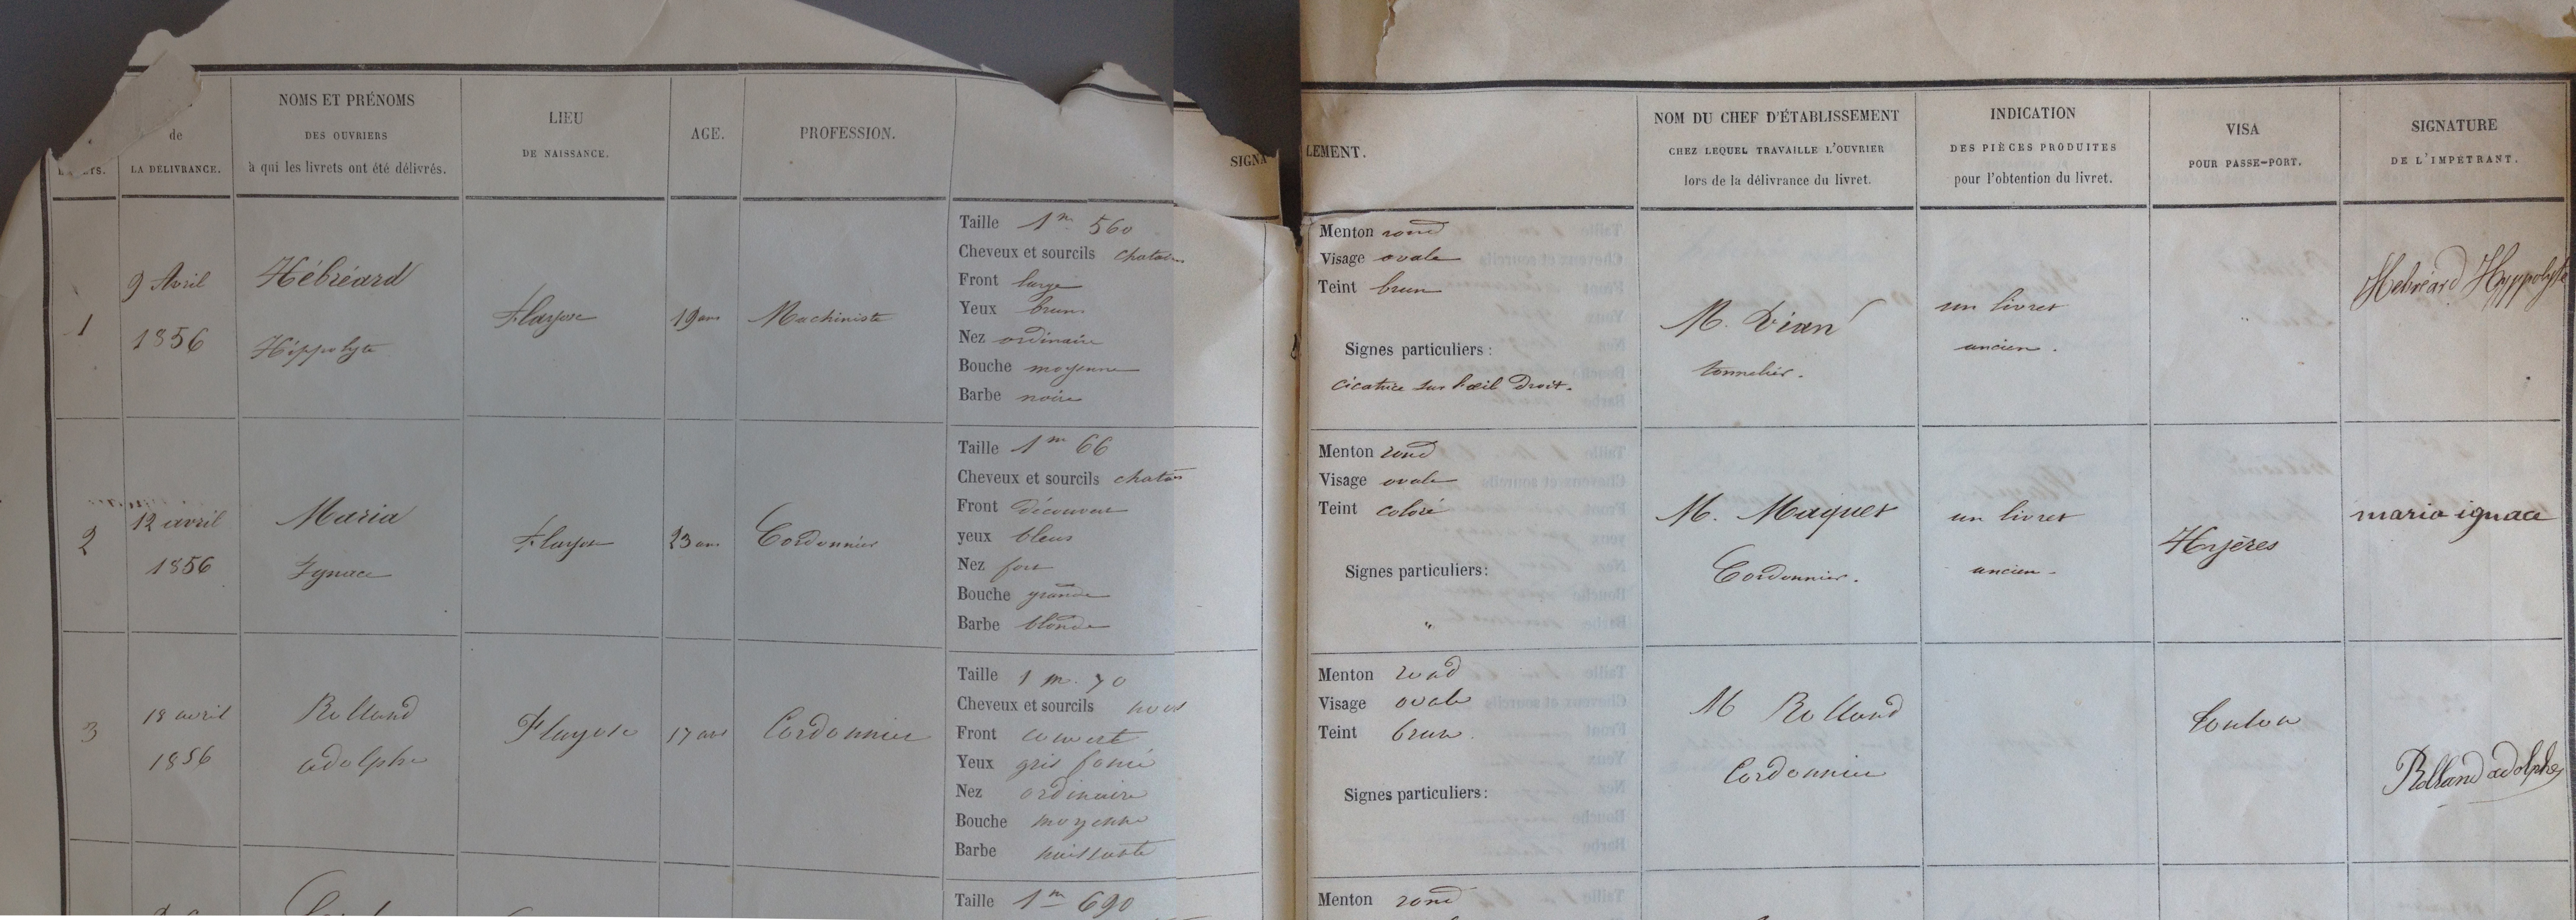 de
LA DÉLIVRANCE.
NOMS ET PRÉNOMS
DES OUVRIERS
à qui les livrets ont été délivrés.
LIEU
DE NAISSANCE.
AGE.
PROFESSION.
SIGNA
LEMENT.
NOM DU CHEF D'ÉTABLISSEMENT
CHEZ LEQUEL TRAVAILLE L'OUVRIER
lors de la délivrance du livret.
INDICATION
DES PIÈCES PRODUITES
pour l'obtention du livret.
VISA
POUR PASSE-PORT.
SIGNATURE
DE L'IMPÉTRANT.
1
9 Avril
1856
Hébréard
Hippolyte
Flayosc
19 ans
Machiniste
Taille 1m 560
Cheveux et sourcils chatains
Front large
Yeux bruns
Nez ordinaire
Bouche moyenne
Barbe noire
Menton rond
Visage ovale
Teint brun
Signes particuliers :
cicatrice sur l'œil droit.
M.
tonnelier.
un livret
ancien.
Hebréard Hyppolyte
2
12 avril
1856
Maria
Ignace
Flayosc
23 ans
Cordonnier
Taille 1m 66
Cheveux et sourcils chatains
Front découvert
yeux bleus
Nez fort
Bouche grande
Barbe blonde
Menton rond
Visage ovale
Teint coloré
Signes particuliers :
"
M. Maquet
Cordonnier.
un livret
ancien.
Hyères
maria ignace
3
18 avril
1856
Rolland
adolphe
Flayosc
17 ans
Cordonnier
Taille 1 m. 70
Cheveux et sourcils noirs
Front couvert
Yeux gris foncé
Nez ordinaire
Bouche moyenne
Barbe naissante
Menton rond
Visage ovale
Teint brun.
Signes particuliers :
M Rolland
Cordonnier
Toulon
Rolland adolphe
Taille 1m 690
Menton rond